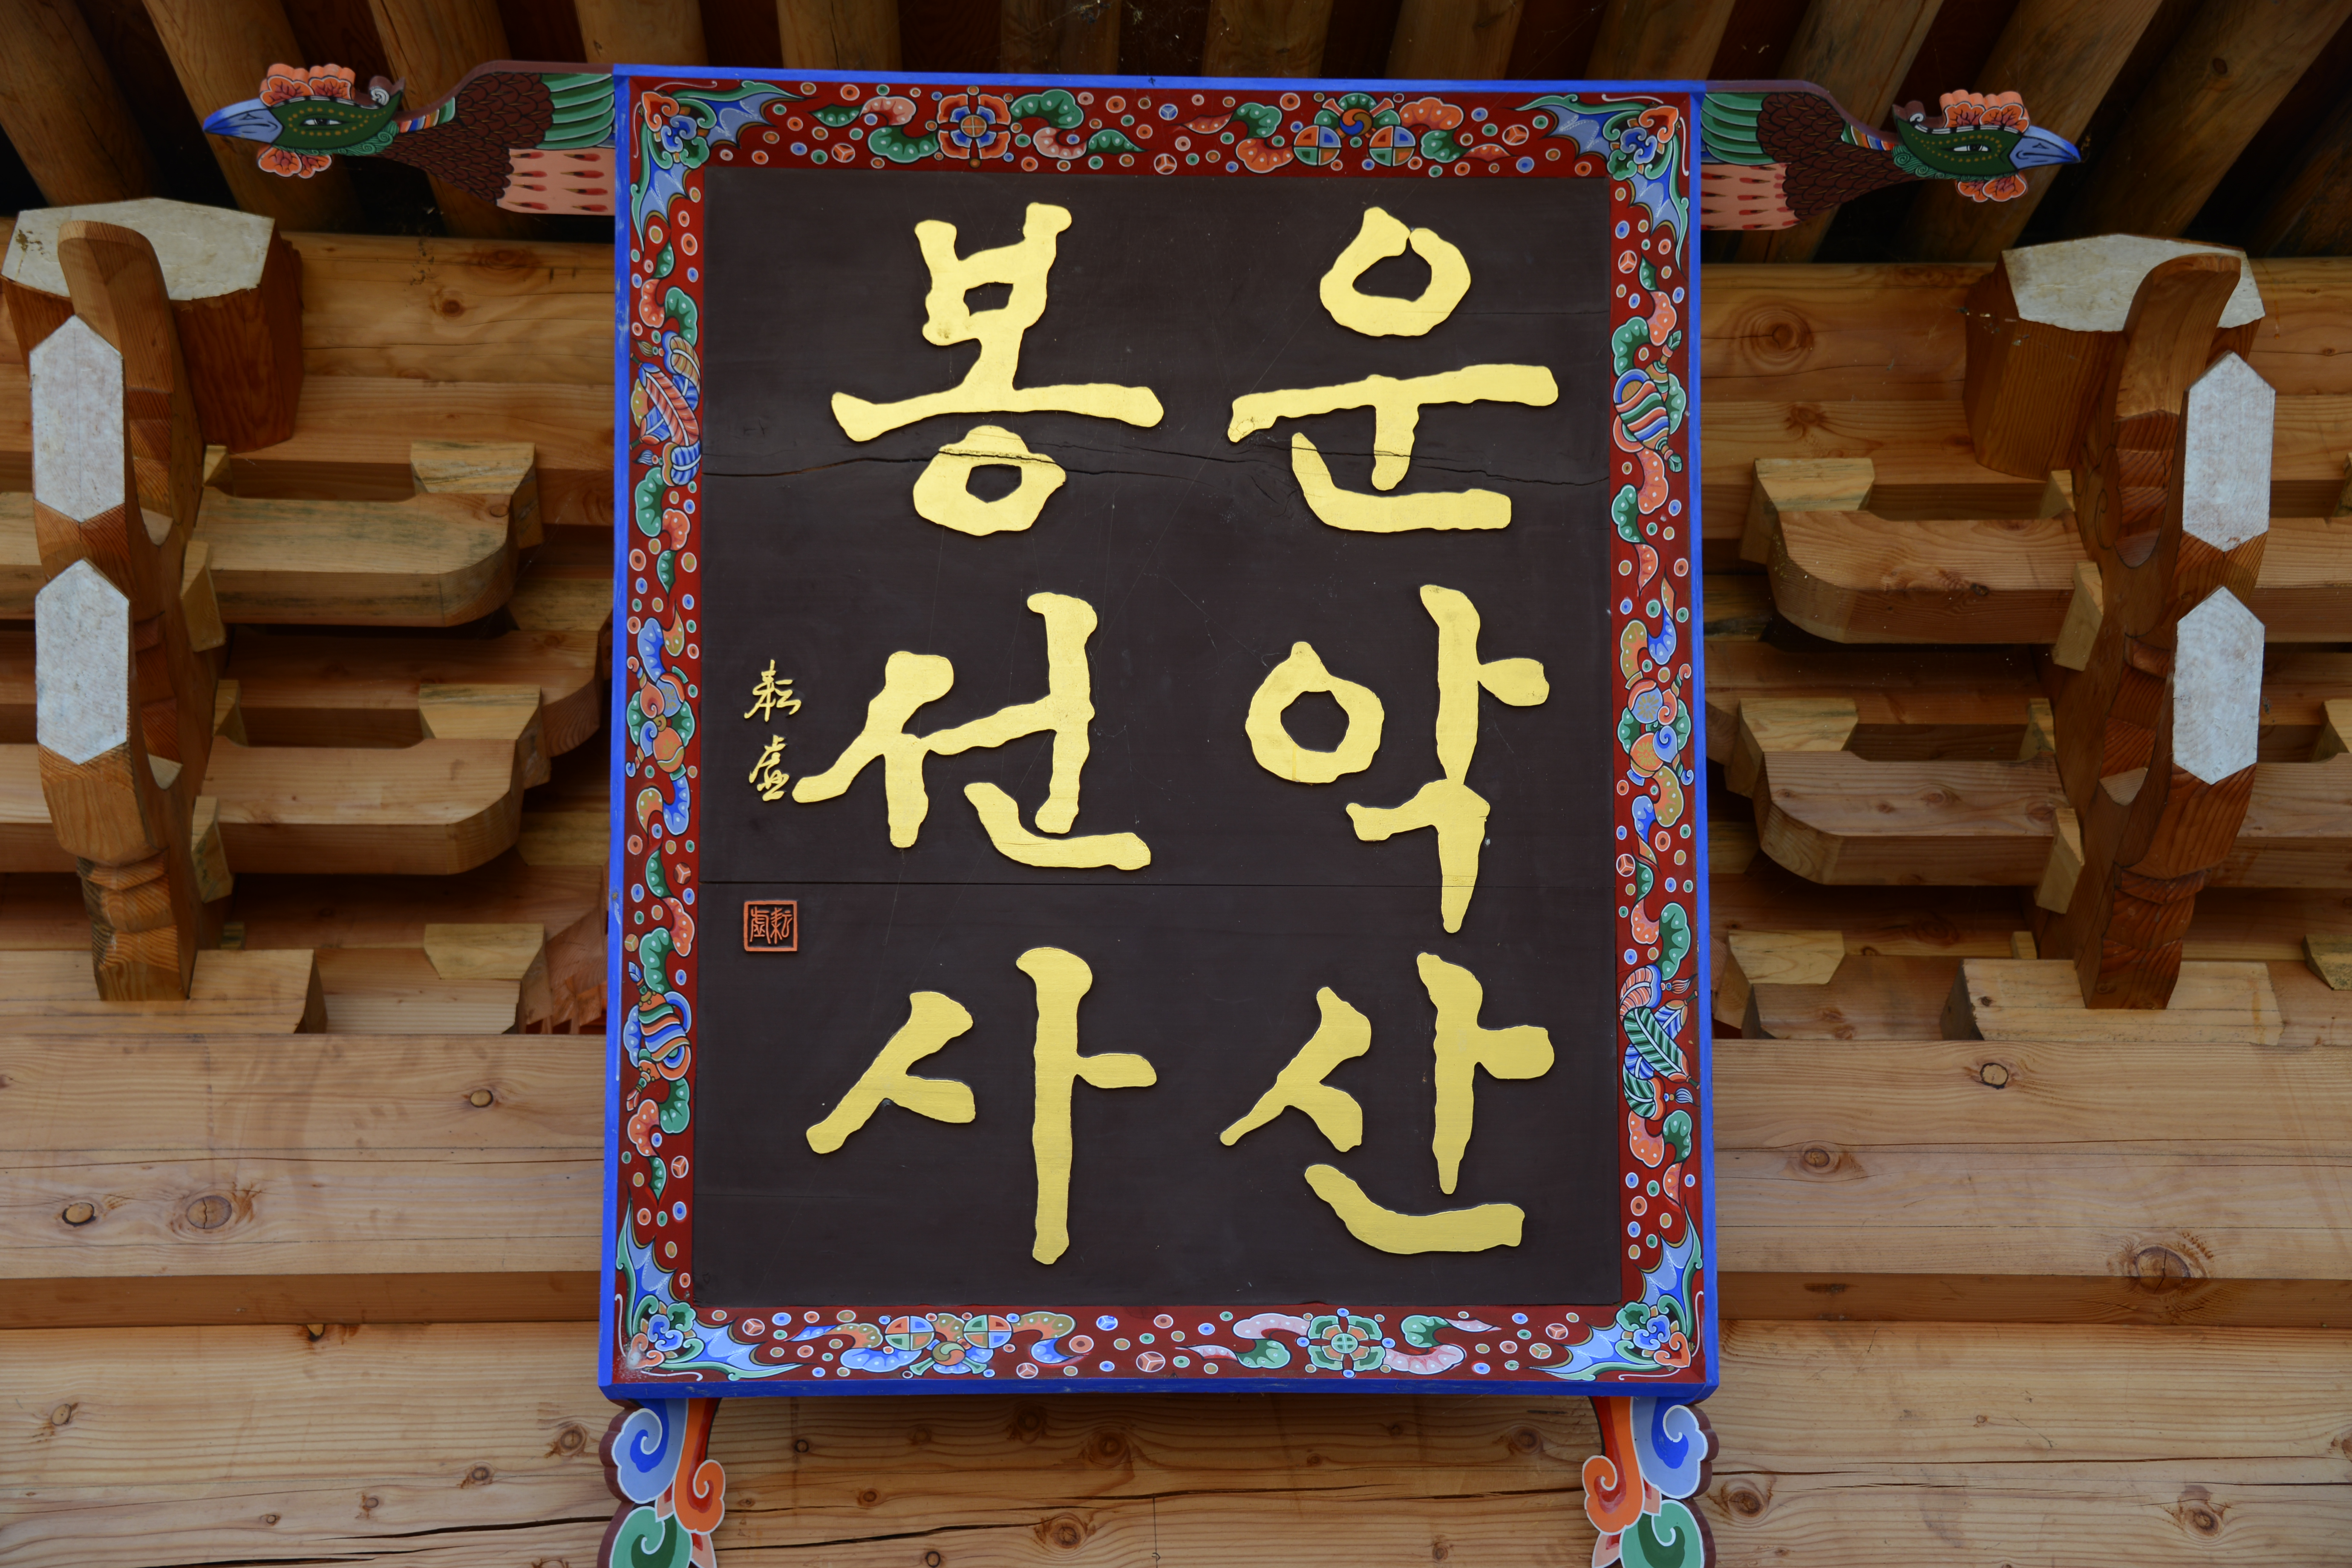 운악산
봉선사
耘虛
耘虛